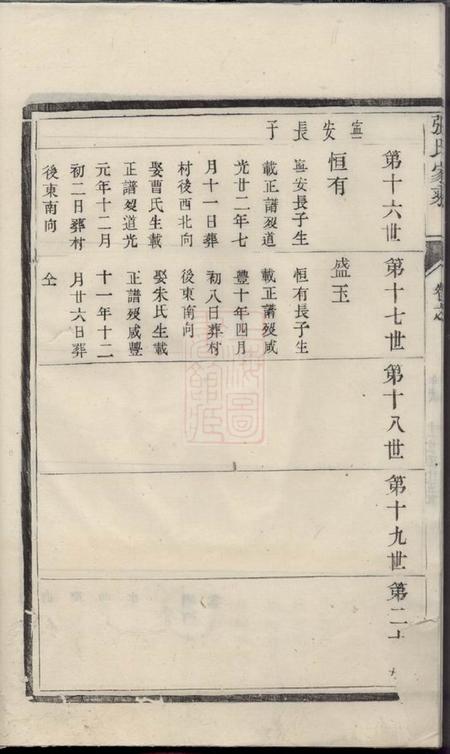 張氏家乘
卷之
第十六世
第十七世
第十八世
第十九世
第二十
寧安長子
恒有
寧安長子生
載正譜歿道
光廿二年七
月十一日葬
村後西北向
娶曹氏生載
正譜歿道光
元年十二月
初二日葬村
後東南向
盛玉
恒有長子生
載正譜歿咸
豐十年四月
初八日葬村
後東南向
娶朱氏生載
正譜歿咸豐
十一年十二
月廿六日葬
仝